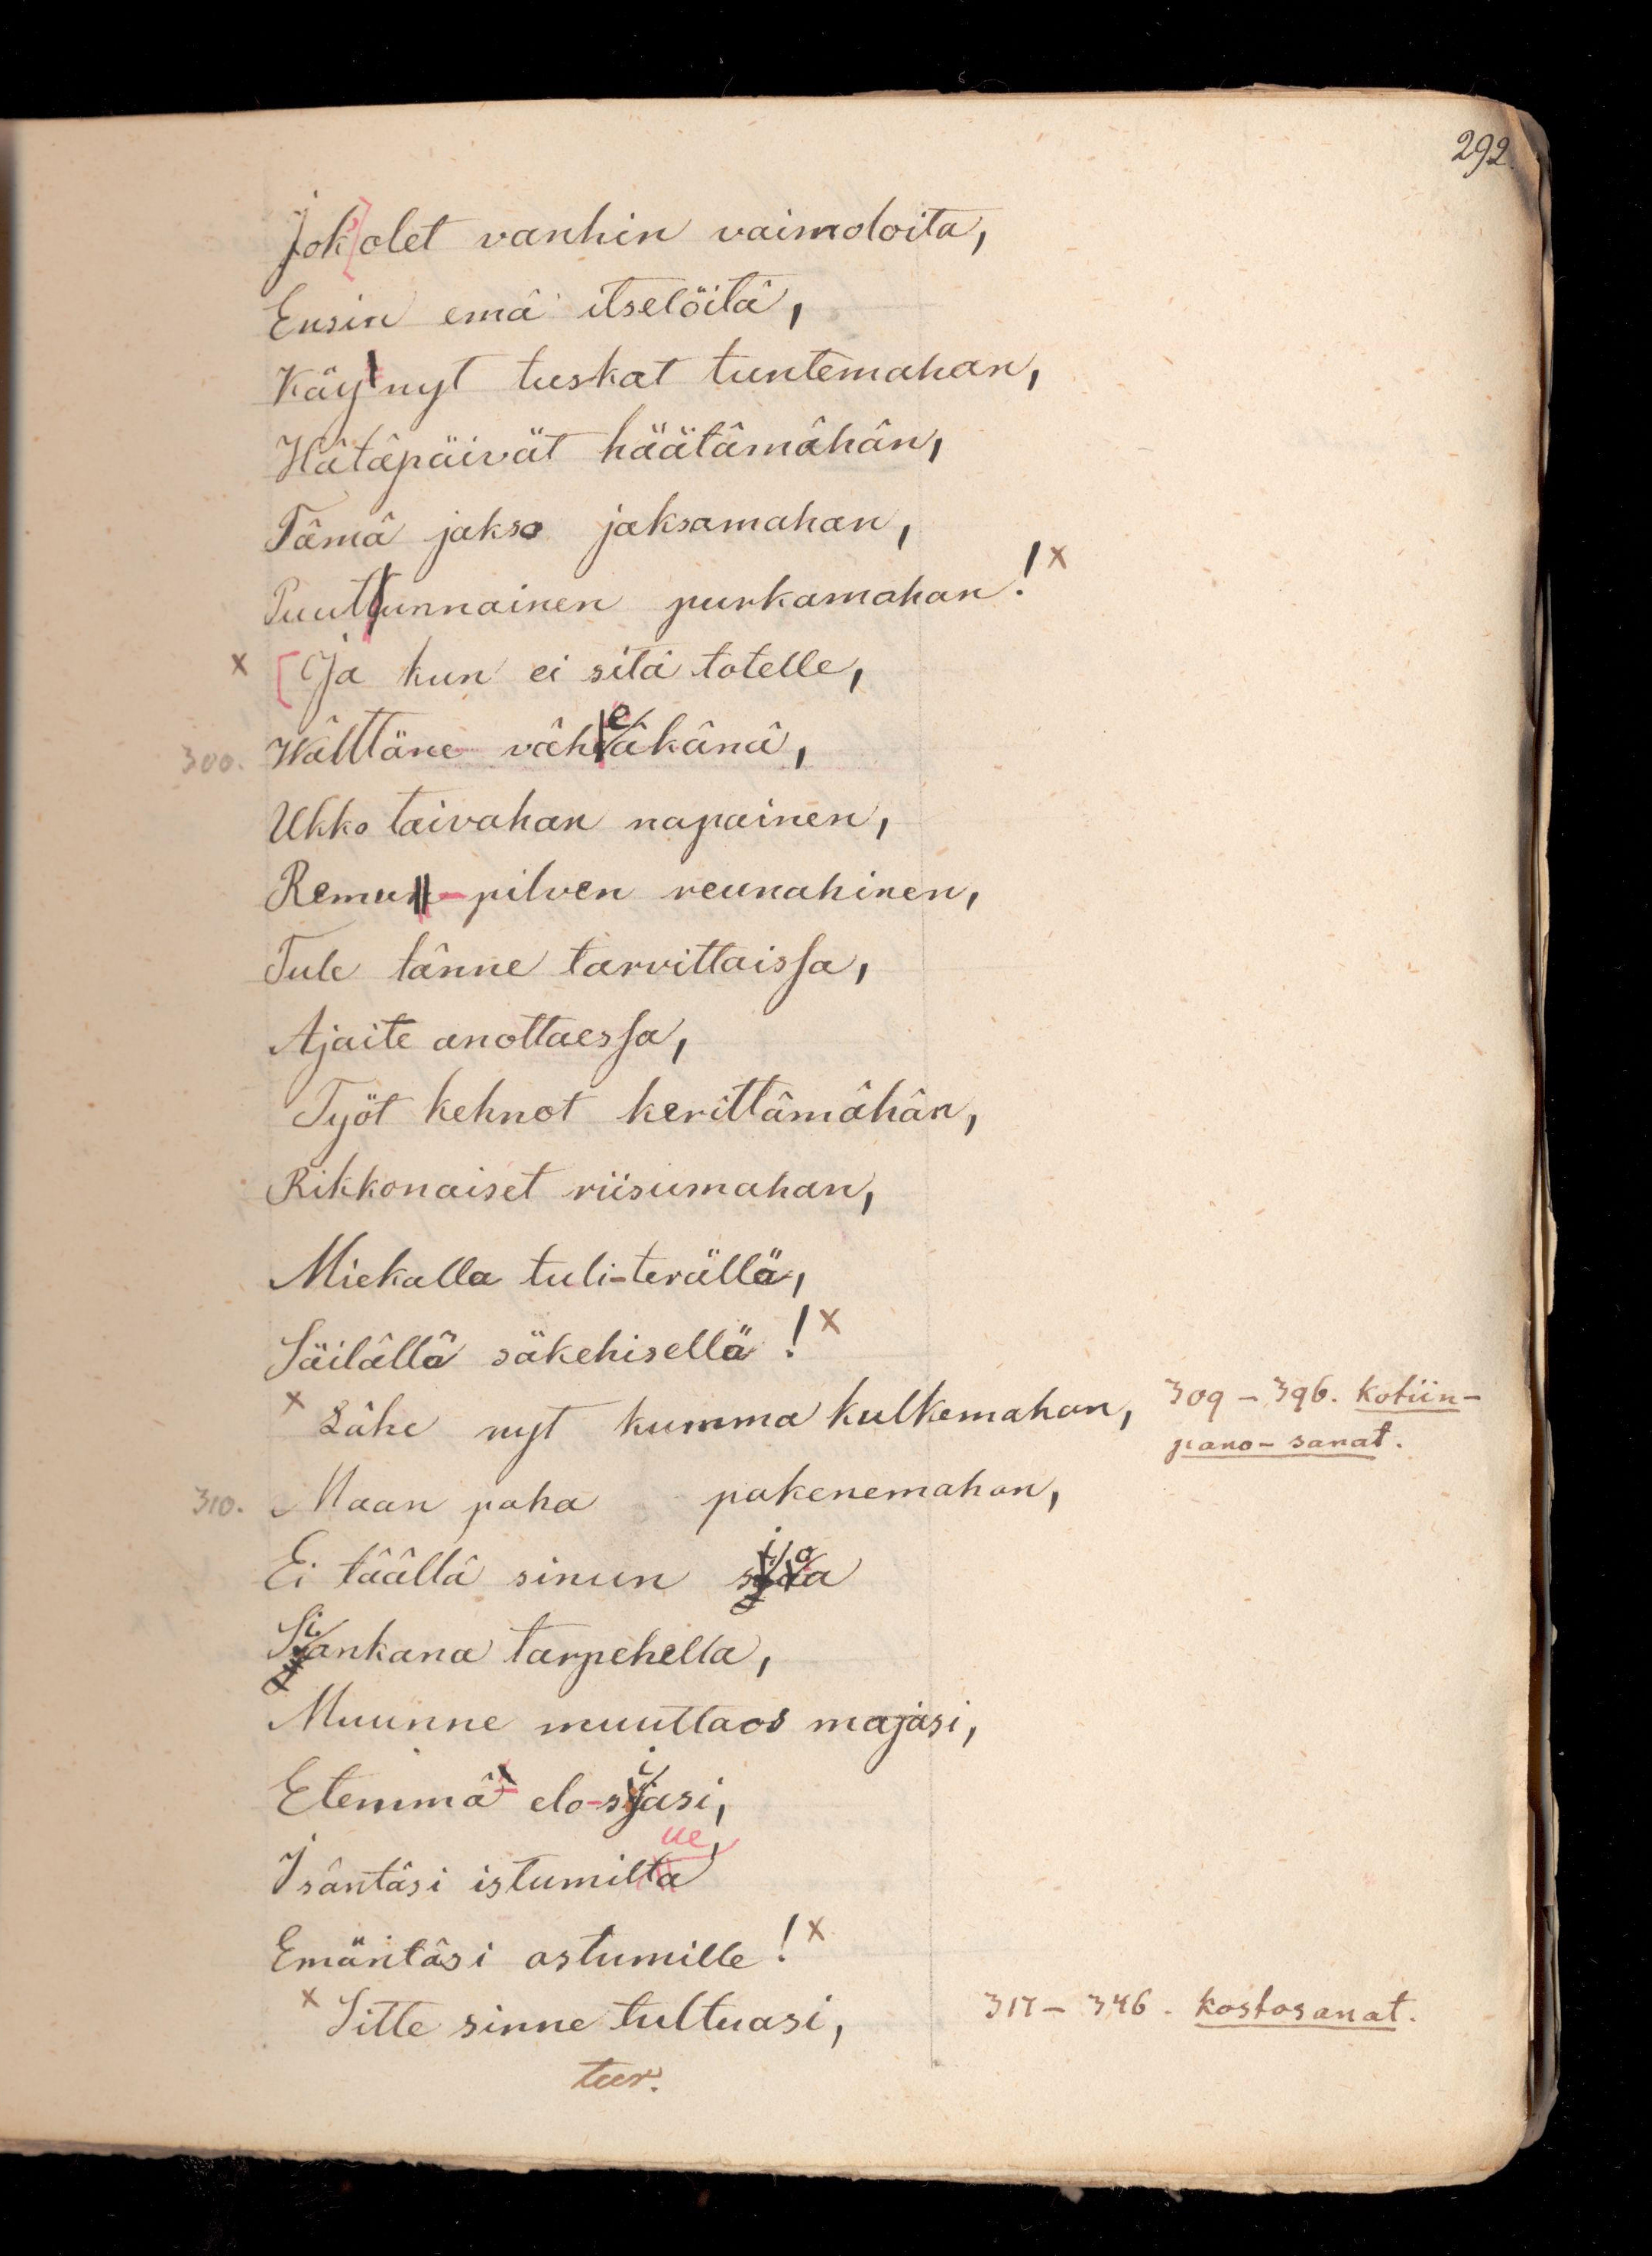 292.
Jok'olet vanhin vaimoloita,
Ensin emä itselöitä,
Käy nyt tuskat tuntemahan,
Hätäpäivät häätämähän,
Tämä jakso jaksamahan,
Puuttunnainen purkamahan! x
x [Ja kun ei sitä totelle,
300. Wälttäne väheäkänä,
Ukko taivahan napainen,
Remu-pilven reunahinen,
Tule tänne tarvittaissa,
Ajaite anottaessa,
Työt kehnot kerittämähän,
Rikkonaiset riisumahan,
Miekalla tuli-terällä,
Säilällä säkehisellä! x
x Lähe nyt kumma kulkemahan, 309 – 396. kotiin-
pano-sanat.
310. Maan paha pakenemahan,
Ei täällä sinun sioa
Siankana tarpehella,
Muunne muuttaos majasi,
Etemmä elo-siasi,
Isäntäsi istumille,
Emäntäsi astumille! x
x Sitte sinne tultuasi, 317 – 346. kostosanat.
tur.